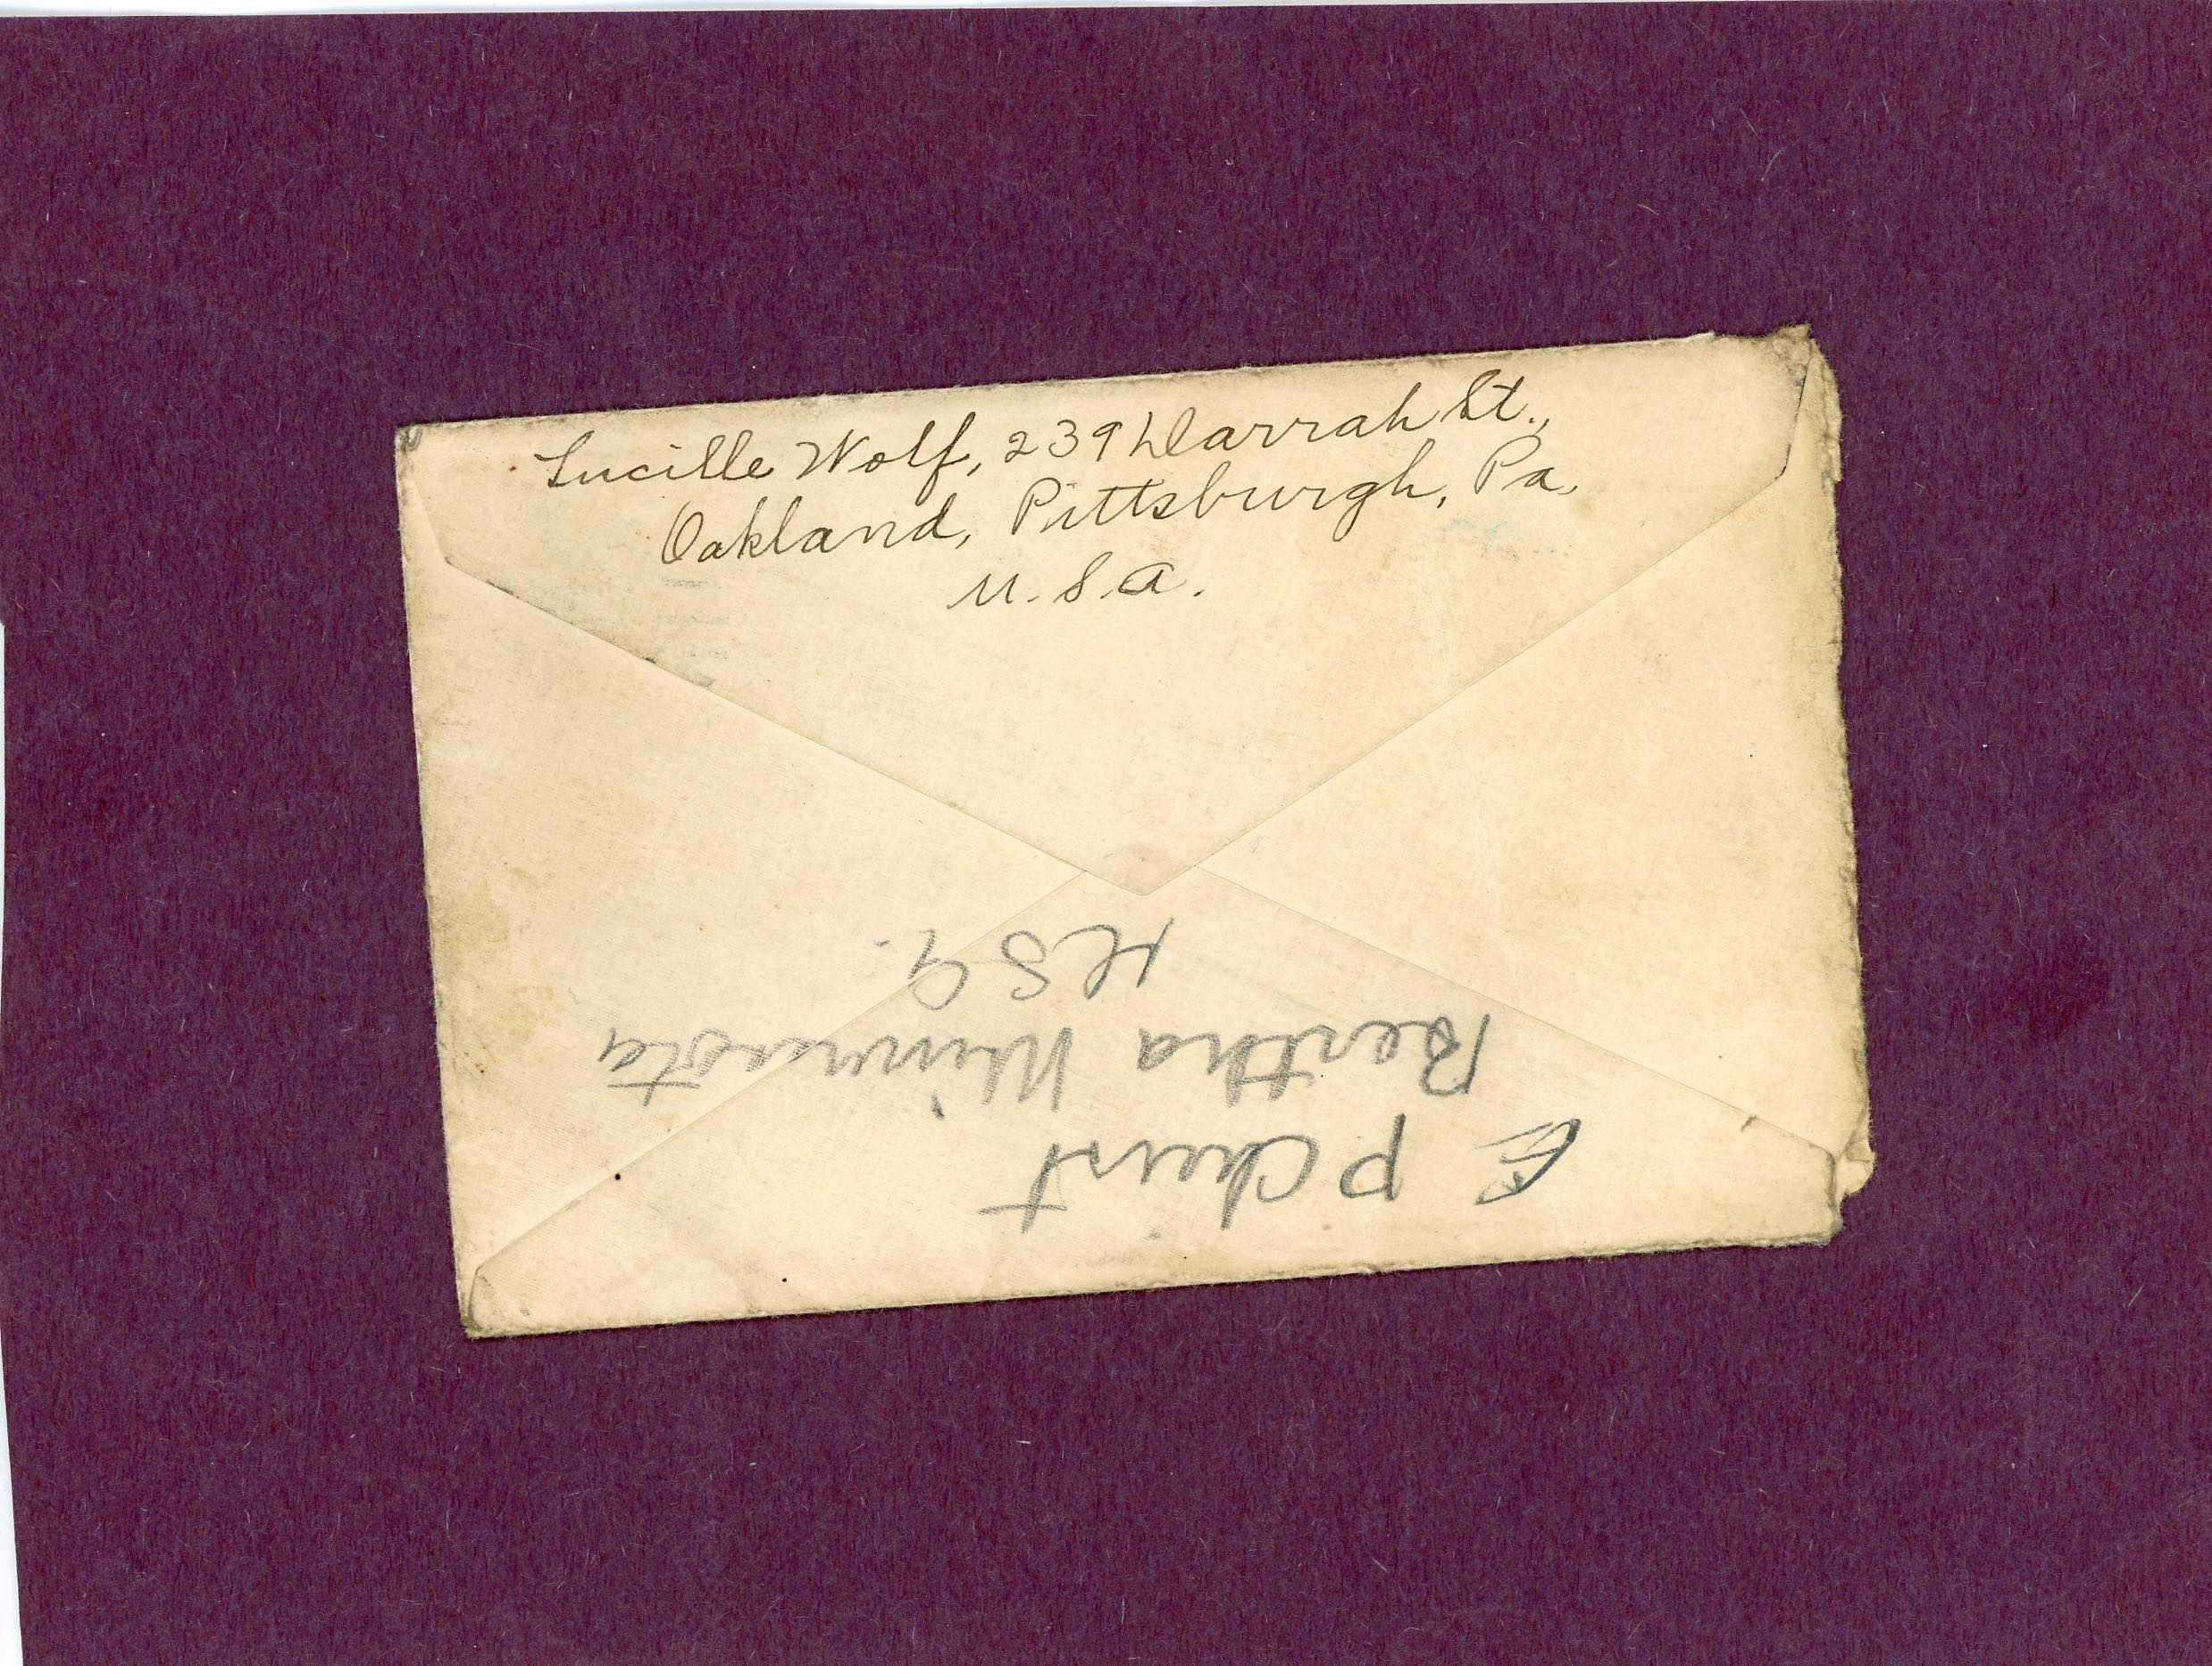 Lucille Wolf, 239 Darrah St.,
Oakland, Pittsburgh, Pa.
U.S.A.
E P Christ
Bertha Minnesota
U S A.